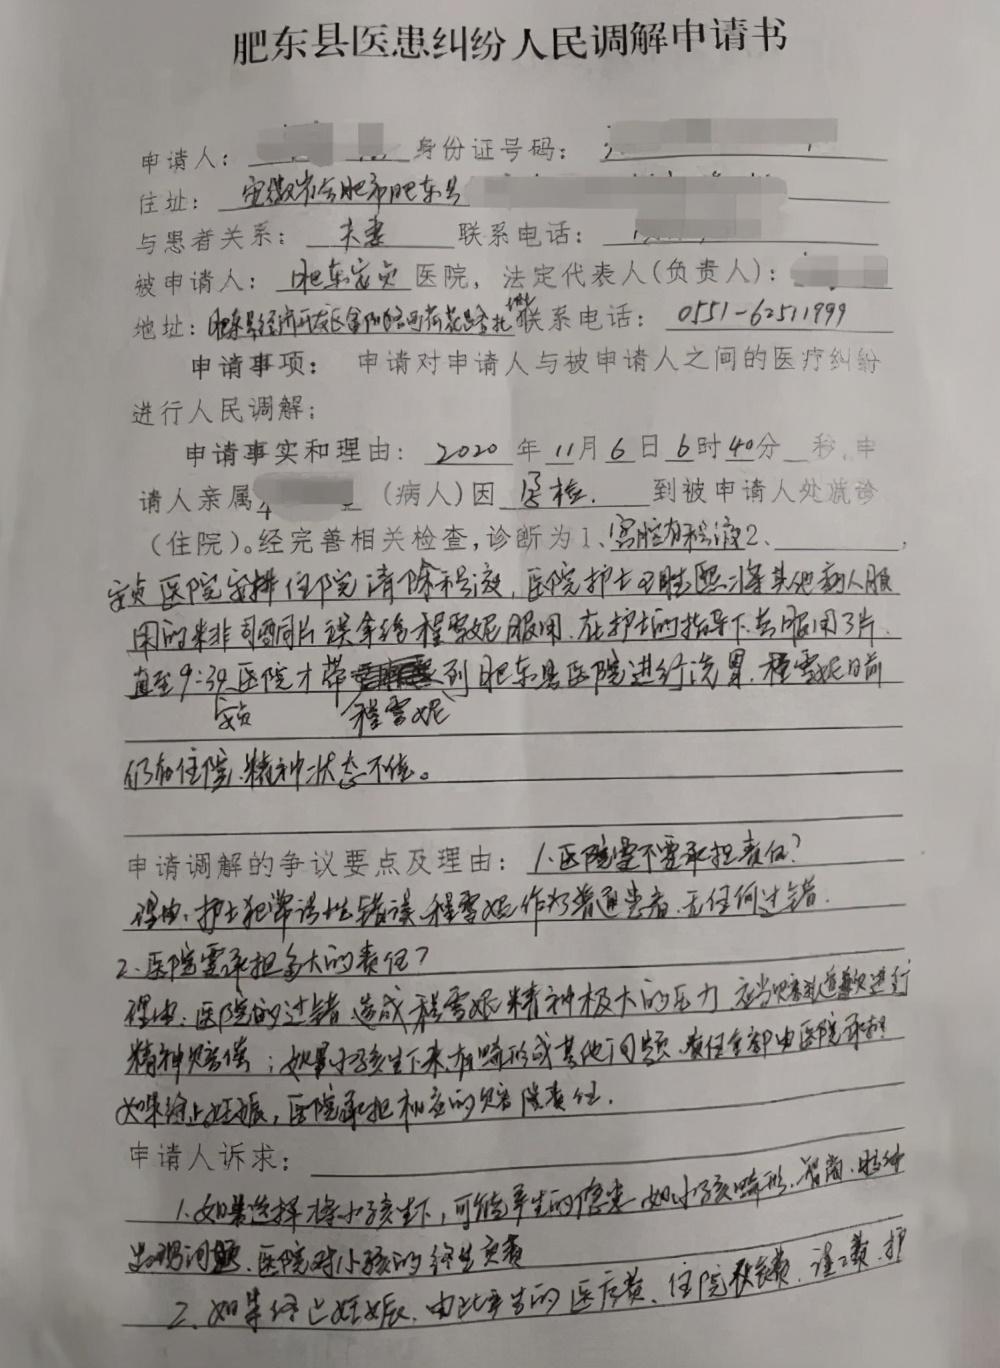 肥东县医患纠纷人民调解申请书
申请人： 身份证号码：
住址：安徽省合肥市肥东县
与患者关系：夫妻 联系电话：
被申请人：肥东安贞医院，法定代表人(负责人)：
地址：肥东县经济开发区 联系电话：0551-62511999
申请事项：申请对申请人与被申请人之间的医疗纠纷
进行人民调解；
申请事实和理由：2020年11月6日6时40分 秒，申
请人亲属 （病人）因孕检. 到被申请人处就诊
（住院）。经完善相关检查，诊断为1、宫腔有积液2、 ，
安贞医院安排住院清除积液，医院护士 将其他病人服
用的米非司酮片误拿给程雪妮服用.在护士的指导下共服用3片.
直至9:30医院才带 到肥东县医院进行洗胃.程雪妮目前
安贞 程雪妮
仍在住院.精神状态不佳。
申请调解的争议要点及理由：1.医院需不需承担责任？
理由：护士犯常识性错误.程雪妮作为普通患者.无任何过错.
2.医院需承担多大的责任？
理由：医院的过错造成程雪妮精神极大的压力.应当赔礼道歉进行
精神赔偿；如果小孩生下来有畸形或其他问题.责任全部由医院承担.
如果终止妊娠，医院承担相应的赔偿责任.
申请人诉求：
1.如果选择将小孩生下，可能产生的隐患如小孩畸形.智商.
出现问题.医院对小孩的终生负责
2.如果终止妊娠.由此产生的医疗费、住院 费、误工费.护